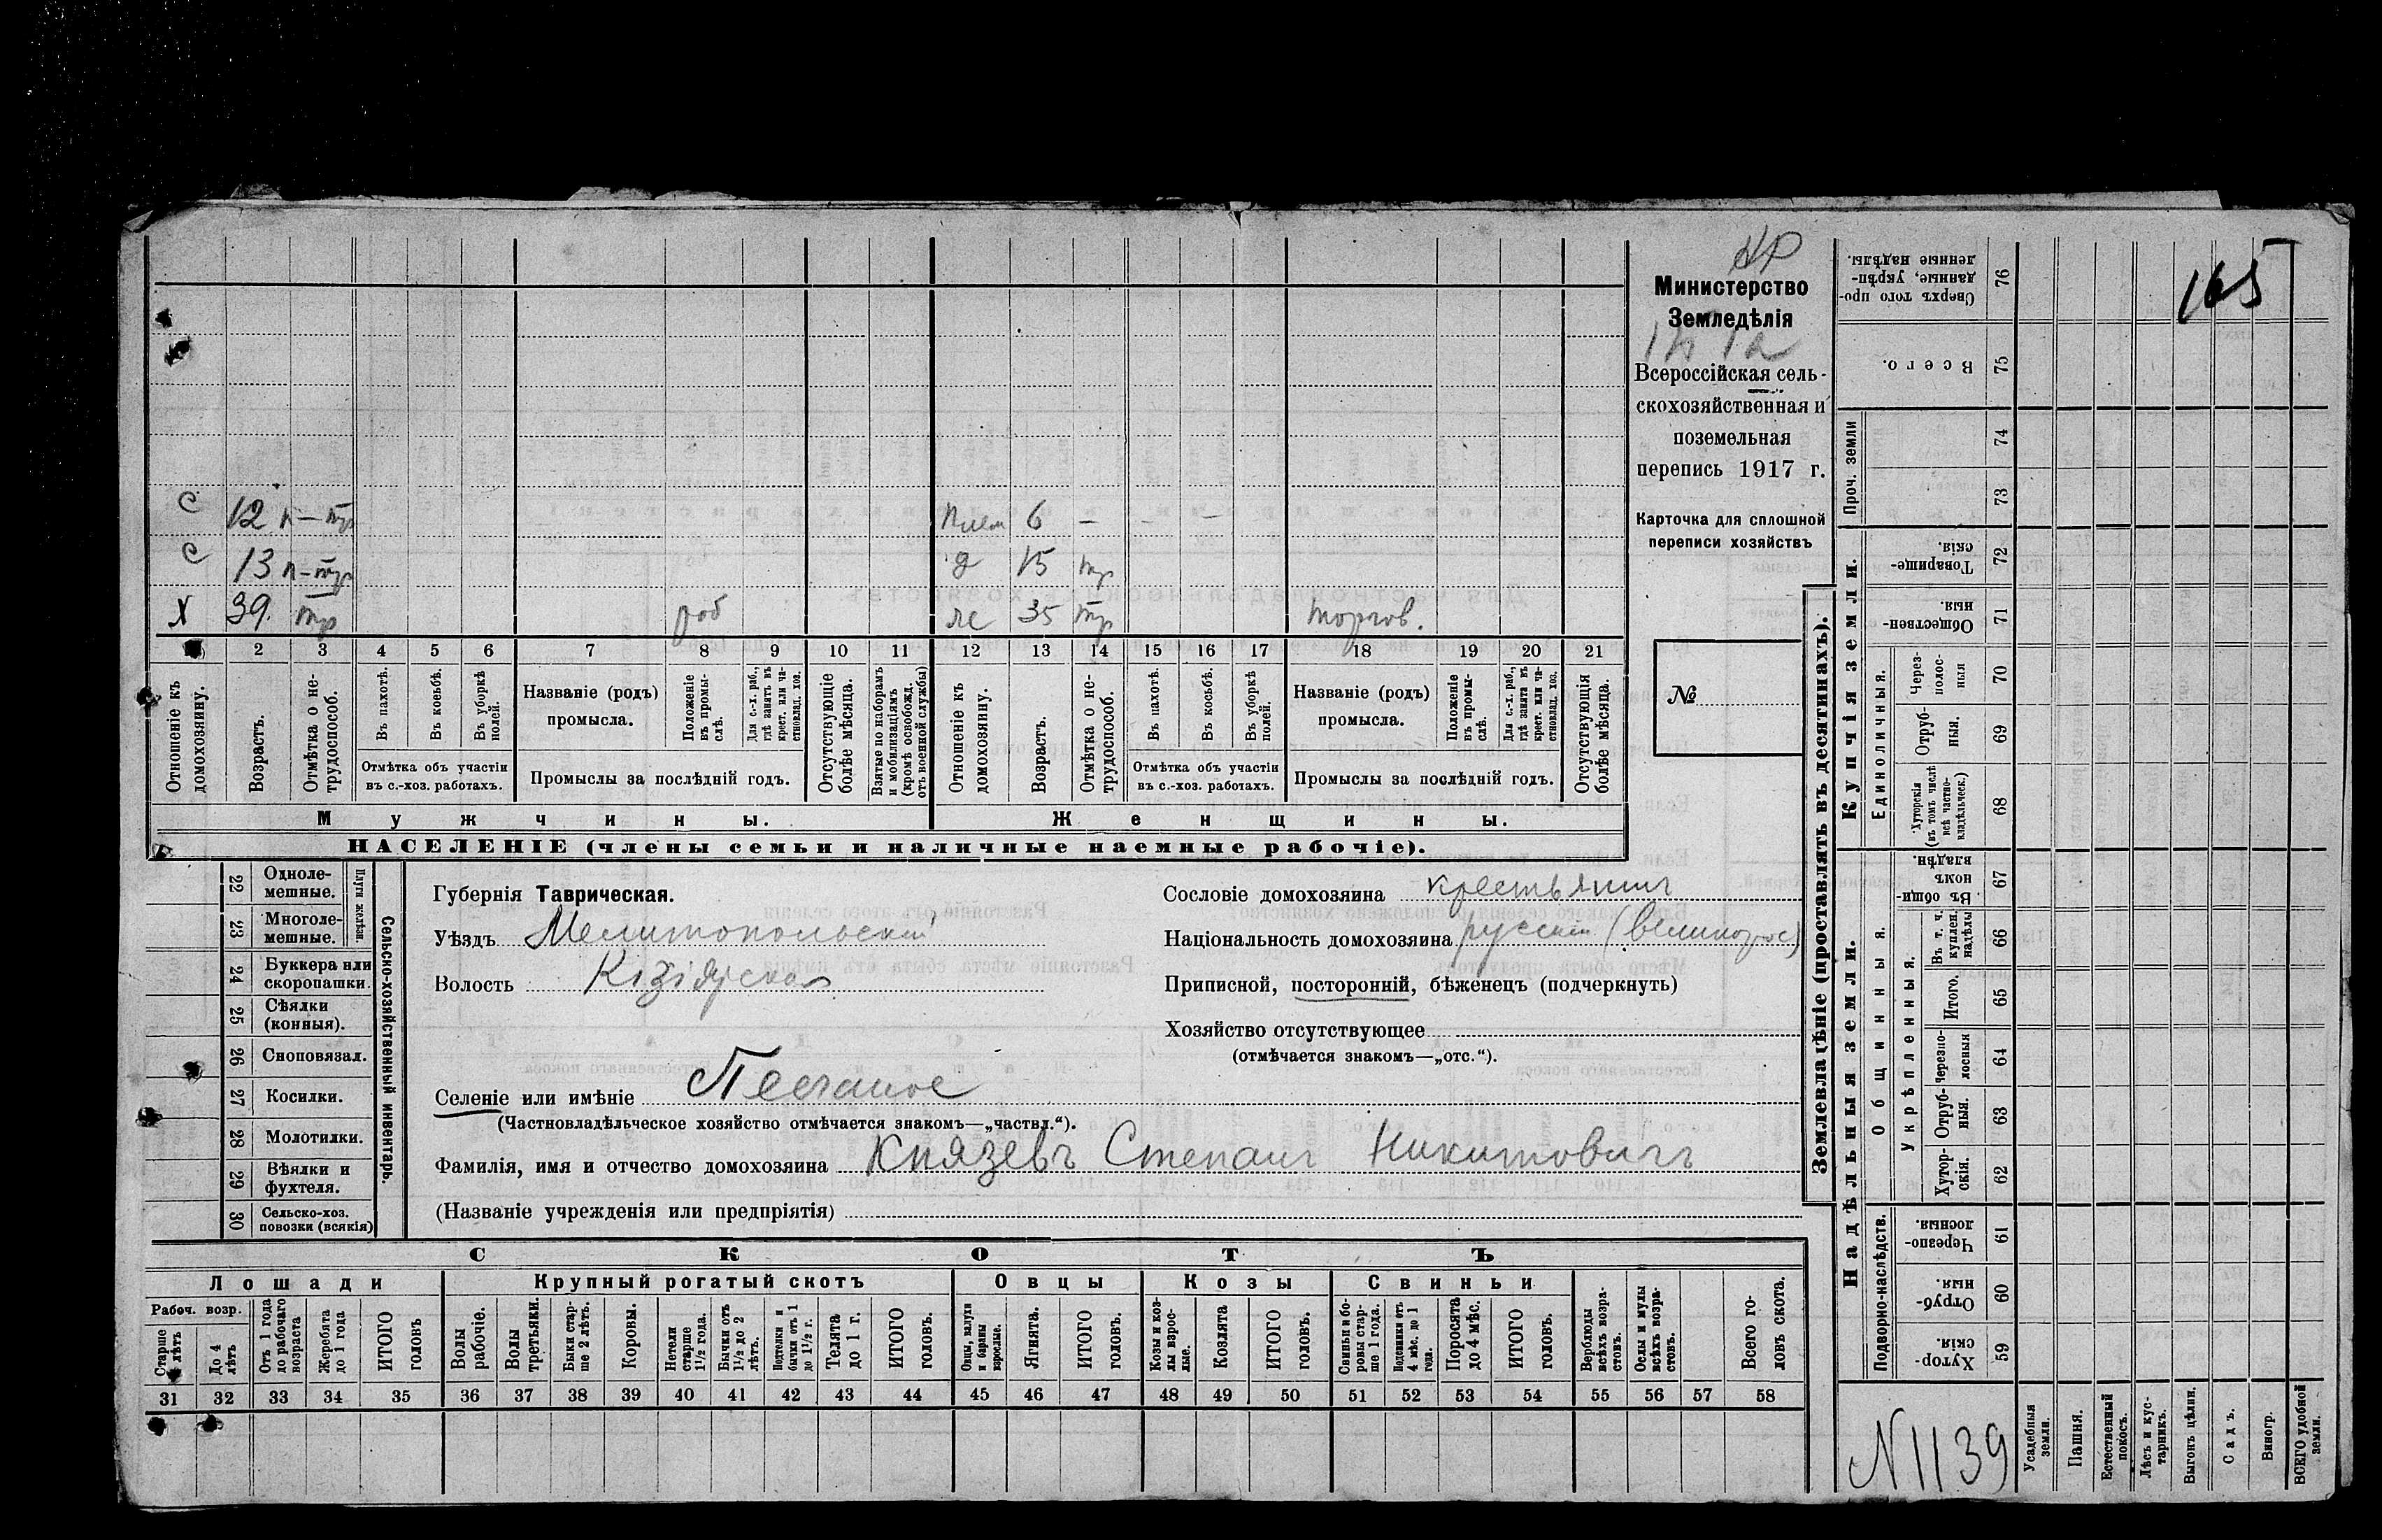 Министерство
Земледѣлія
Всероссійская сель-
скохозяйственная и
поземельная
перепись 1917 г.
Карточка для сплошной
переписи хозяйствъ
№
165
С 12 п-тр Плем 6 - - -
С 13 п-тр д 15 тр
Х 39. тр роб ж 35 тр торгов.
2 3 4 5 6 7 8 9 10 11 12 13 14 15 16 17 18 19 20 21
Отношеніе къ домохозяину.
Возрастъ.
Отмѣтка о не-трудоспособ.
Въ пахотѣ.
Въ косьбѣ.
Въ уборкѣ полей.
Отмѣтка объ участіи
въ с.-хоз. работахъ.
Названіе (родъ)
промысла.
Положеніе въ промы-слѣ.
Для с.-х. раб., гдѣ занятъ въ крест. или ча-стновлад. хоз.
Промыслы за послѣдній годъ.
Отсутствующіе болѣе мѣсяца.
Взятые по наборамъ и мобилизаціямъ (кромѣ освобожд. отъ военной службы)
Отношеніе къ домохозяину.
Возрастъ.
Отмѣтка о не-трудоспособ.
Въ пахотѣ.
Въ косьбѣ.
Въ уборкѣ полей.
Отмѣтка объ участіи
въ с.-хоз. работахъ.
Названіе (родъ)
промысла.
Положеніе въ промы-слѣ.
Для с.-х. раб., гдѣ занята въ крест. или ча-стновлад. хоз.
Промыслы за послѣдній годъ.
Отсутствующія болѣе мѣсяца.
Мужчины. Женщины.
НАСЕЛЕНІЕ (члены семьи и наличные наемные рабочіе).
22 Однолемешные.
23 Многолемешные.
Плуги желѣзн.
24 Буккера или скоропашки.
25 Сѣялки (конныя).
26 Сноповязал.
27 Косилки.
28 Молотилки.
29 Вѣялки и фухтеля.
30 Сельско-хоз. повозки (всякія)
Сельско-хозяйственный инвентарь.
Губернія Таврическая.
Уѣздъ Мелитопольскій
Волость Кізіярская
Селеніе или имѣніе Песчаное
(Частновладѣльческое хозяйство отмѣчается знакомъ—„частвл.“).
Фамилія, имя и отчество домохозяина Князевъ Степанъ Никитовичъ
(Названіе учрежденія или предпріятія)
Сословіе домохозяина крестьянинъ
Національность домохозяина русскій (великорос)
Приписной, посторонній, бѣженецъ (подчеркнуть)
Хозяйство отсутствующее
(отмѣчается знакомъ—„отс.“).
СКОТЪ
Лошади Крупный рогатый скотъ Овцы Козы Свиньи
Рабоч. возр.
Старше лѣтъ
До 4 лѣтъ
Отъ 1 года до рабочаго возраста
Жеребята до 1 года
ИТОГО головъ
Волы рабочіе.
Волы третьяки.
Быки стар-ше 2 лѣтъ.
Коровы.
Нетели старше 1½ года.
Бычки отъ 1½ до 2 лѣтъ.
Подтелки и бычки отъ 1 до 1½ г.
Телята до 1 г.
ИТОГО головъ.
Овцы, валухи и бараны взрослые.
Ягнята.
ИТОГО головъ.
Козы и коз-лы взрос-лые.
Козлята
ИТОГО головъ.
Свиньи и бо-ровы стар-ше 1 года.
Подсвинки отъ 4 мѣс. до 1 года.
Поросята до 4 мѣс.
ИТОГО головъ.
Верблюды всѣхъ возра-стовъ.
Ослы и мулы всѣхъ возра-стовъ.
Всего го-ловъ скота.
31 32 33 34 35 36 37 38 39 40 41 42 43 44 45 46 47 48 49 50 51 52 53 54 55 56 57 58
Землевладѣніе (проставлять въ десятинахъ).
Купчія земли.
Надѣльныя земли.
Сверхъ того про-данные, укрѣп-ленные надѣлы. 76
Всего. 75
Проч. земли 74
73
Товарище-скія. 72
Обществен-ныя. 71
Единоличныя.
Через-полос-ныя 70
Отруб-ныя. 69
Хуторскія (въ томъ числѣ всѣ частно-владѣльческ.) 68
Въ общи-номъ владѣн. 67
Общинныя.
Укрѣпленныя.
Въ т. ч. куплен. надѣлы 66
Итого. 65
Черезпо-лосныя 64
Отруб-ныя. 63
Хутор-скія. 62
Подворно-наслѣдств.
Черезпо-лосныя. 61
Отруб-ныя. 60
Хутор-скія. 59
N 1139
Усадебныя земли.
Пашня.
Естественный покосъ.
Лѣсъ и кус-тарникъ.
Выгонъ цѣлин.
Садъ.
Виногр.
ВСЕГО удобной земли.